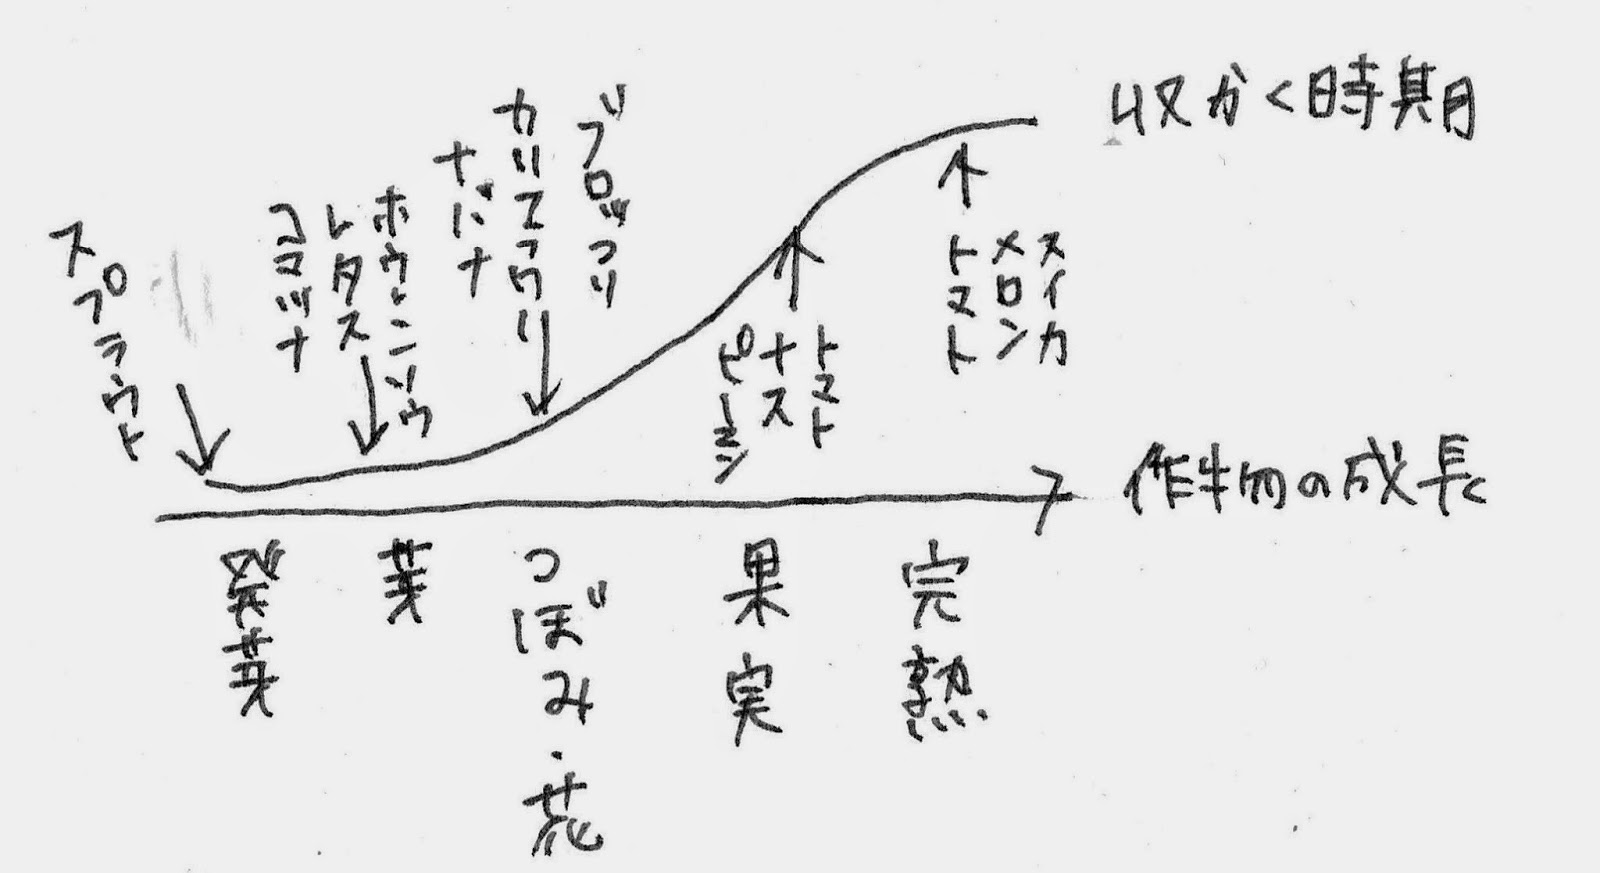 収かく時期
スプラウト
ホウレンソウ
レタス
コマツナ
ブロッコリ
カリフラワー
ナバナ
トマト
ナス
ピーマン
スイカ
メロン
トマト
作物の成長
発芽
芽
つぼみ・花
果実
完熟